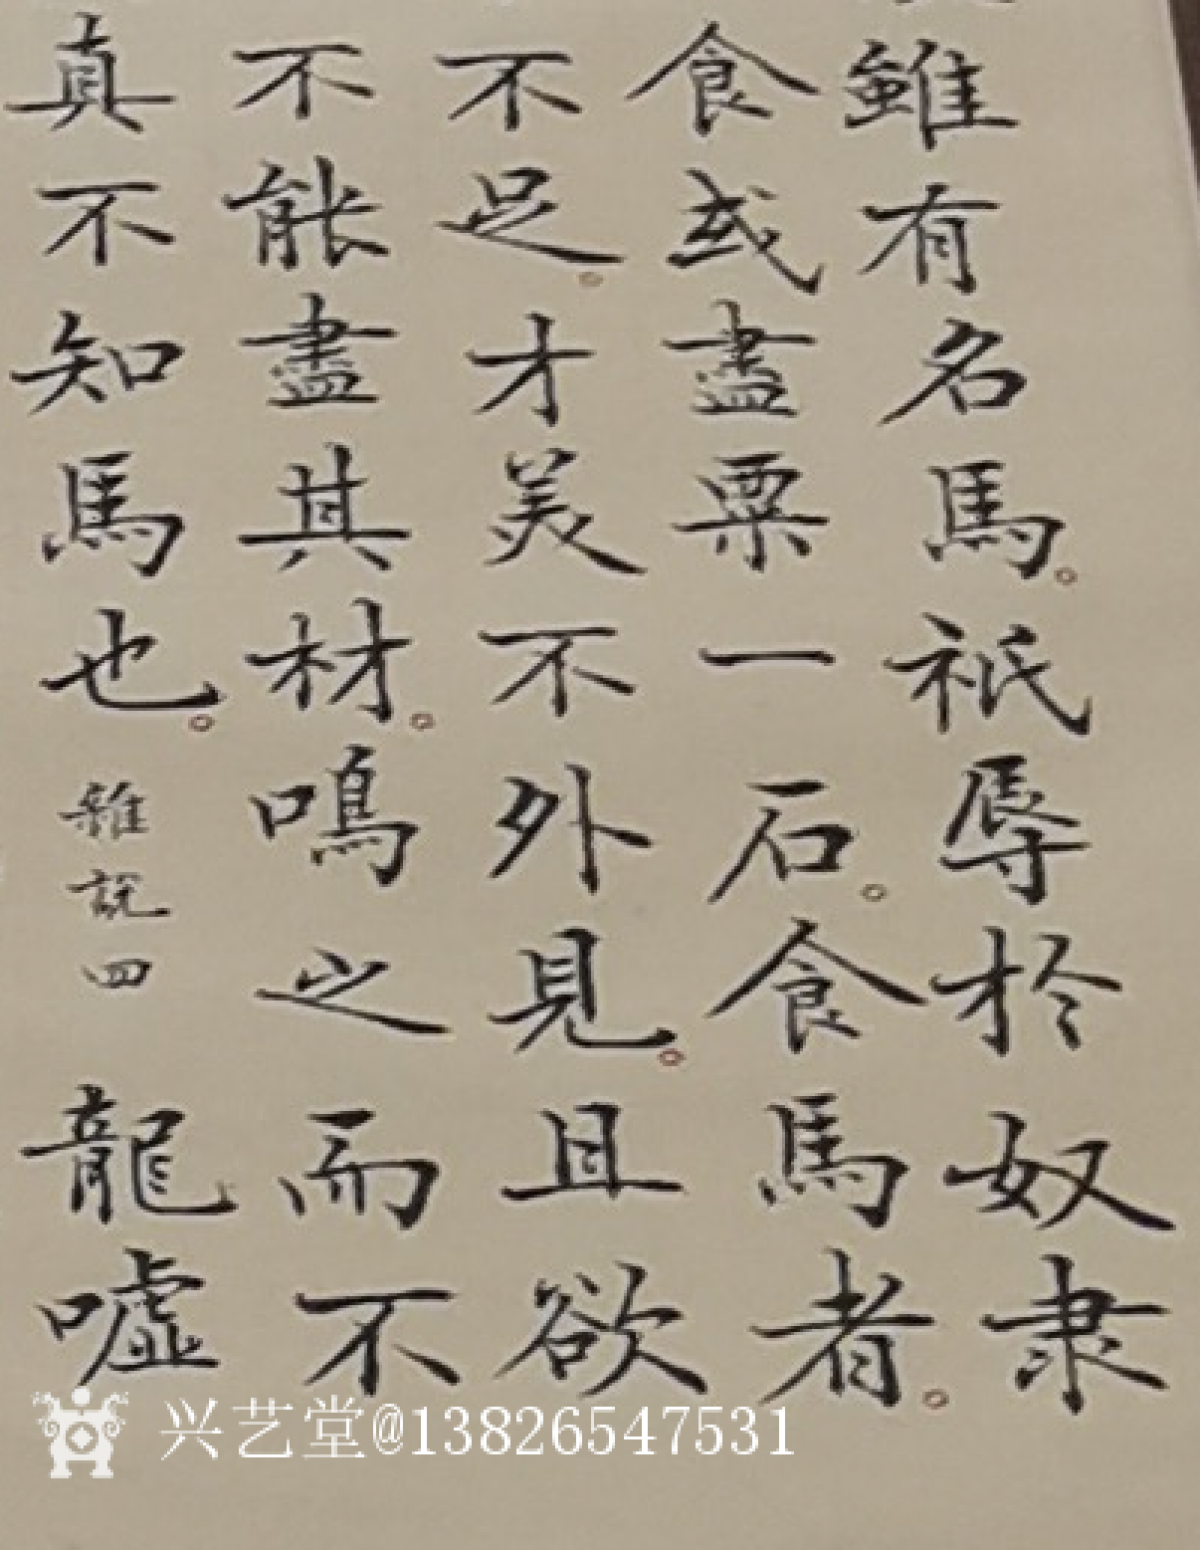 雖有名馬。祇辱於奴隶
食或盡粟一石。食馬者。
不足。才美不外見。且欲
不能盡其材。鳴之而不
真不知馬也。雜說四 龍噓
兴艺堂@13826547531